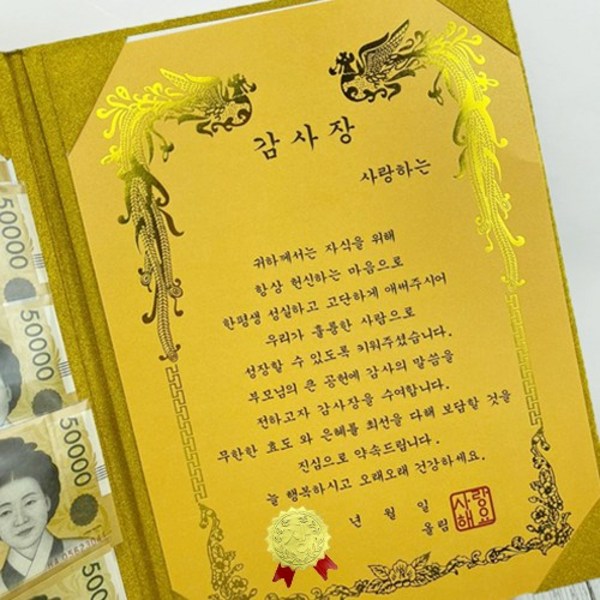 감사장
사랑하는
귀하께서는 자식을 위해
항상 헌신하는 마음으로
한평생 성실하고 고단하게 애써주시어
우리가 훌륭한 사람으로
성장할 수 있도록 키워주셨습니다.
부모님의 큰 공헌에 감사의 말씀을
전하고자 감사장을 수여합니다.
무한한 효도 와 은혜를 최선을 다해 보답할 것을
진심으로 약속드립니다.
늘 행복하시고 오래오래 건강하세요.
년 월 일
올림
사랑
해요
50000
50000
50000
50000